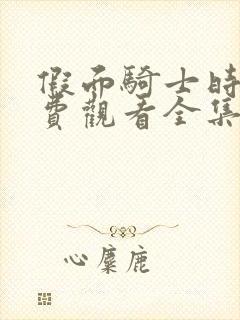 假面騎士時
費觀看全集
心麋鹿